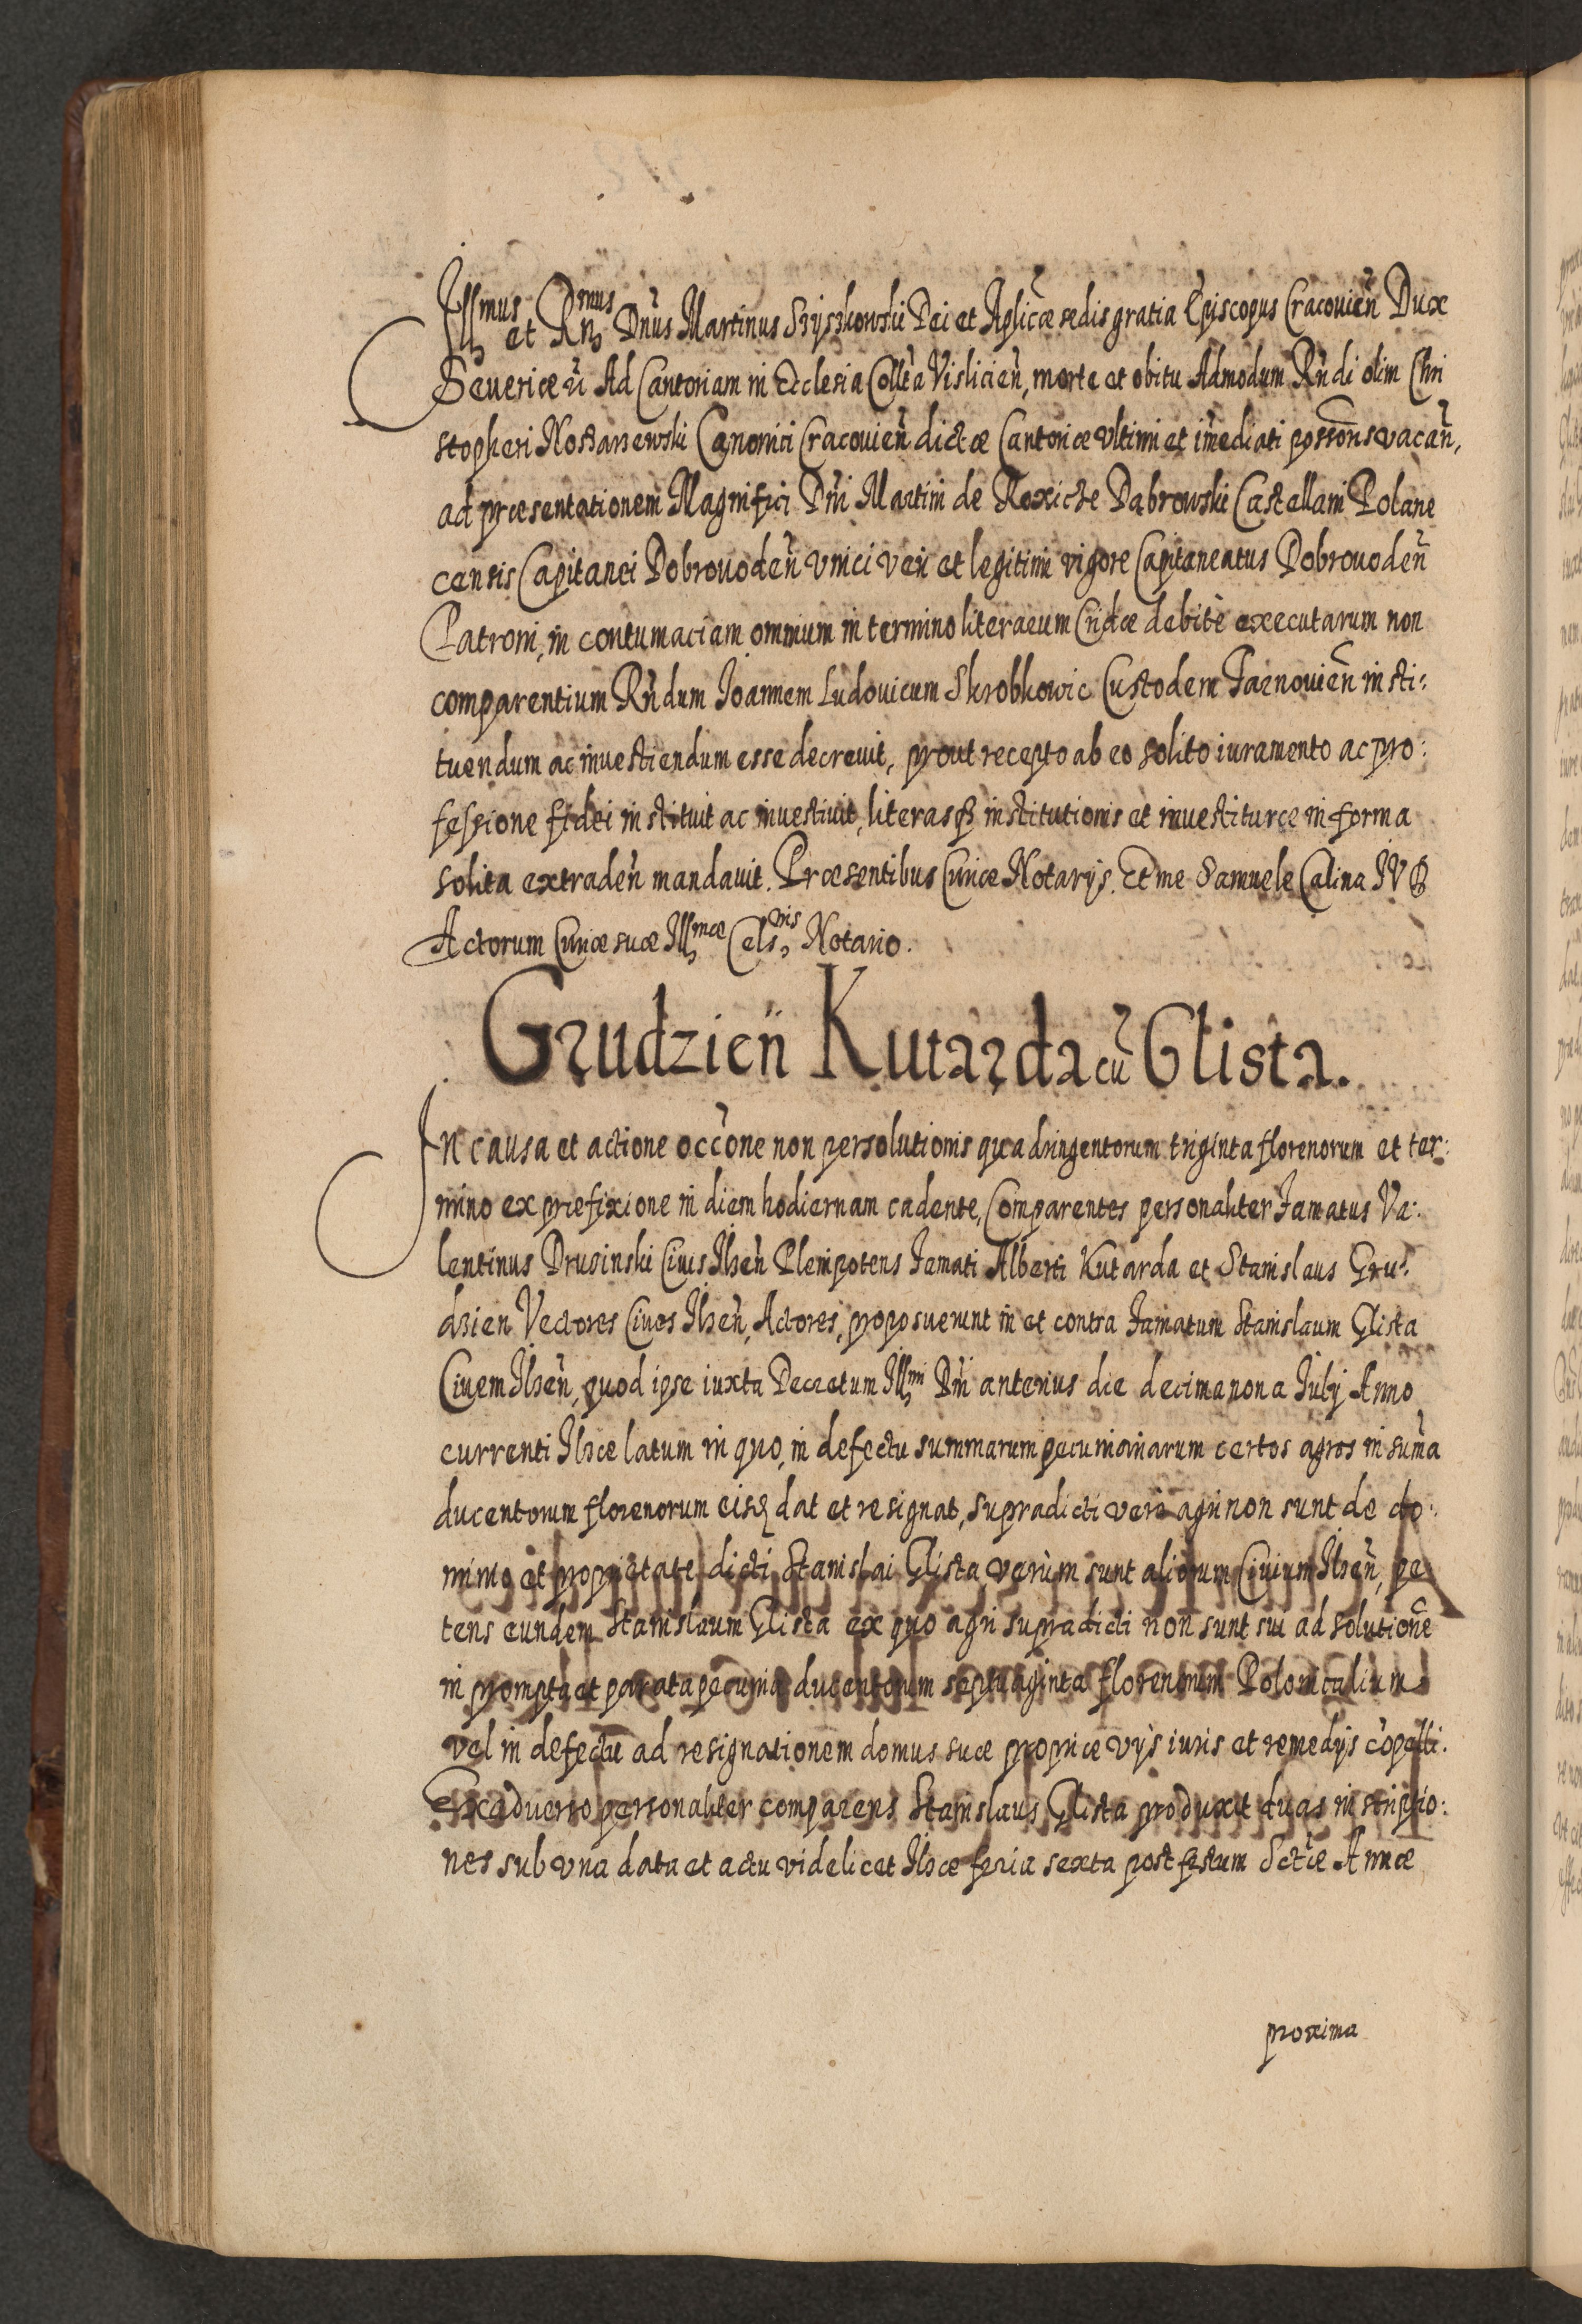 Illmus et Rnmus Dnus Martinus Szyszkowski Dei et Aplicæ sedis gratia Episcopus Cracovien Dux
Severiæ ad Cantoriam in Ecclesia Collta Vislicien, morte et obitu Admodum Rndi olim Chri
stopheri Cano nici Cracovien dictæ Cantoriæ Vltimi et imediati possoris vacan,
ad præsentationem Magnifici Dni Martini de Dabrowski Castellani Polane
censis Capitanei Dobrovoden Vnici veri et legitimi vigore Capitaneatus Dobrovoden
Patroni, in contumaciam omnium in termino literarum Cridæ debitè executarum non
comparentium Rndum Joannem Ludovicum Skrobkowic Custodem Tarnovien insti:
tuendum ac investiendum esse decrevit, prout recepto ab eo solito iuramento ac pro:
fessione fidei instituit ac investivit, literasq institutionis et investituræ in forma
solita extraden mandavit. Præsentibus Curiæ Notarijs. Et me Samuele Calina IVD
Actorum Curiæ suæ Illmæ Celsnis Notario.
Grudzień Kutarda cū Glista.
In causa et actione occone non persolutionis quadringentorum triginta florenorum et ter:
mino ex præfixione in diem hodiernam cadente, Comparentes personaliter famatus Va:
lentinus Druzinski Civis Ilzen Plenipotens famati Alberti Kutarda et Stanislaus Gru:
dzien Vectores Cives Ilzen, Actores, proposuerunt in et contra famatum Stanislaum Glista
Civem Ilzen, quod ipse iuxta Decretum Illmi Dni anterius die decimanona Julij Anno
currenti Ilzæ latum in quo, in defectu summarum pecuniariarum certos agros in suma
ducentorum florenorum eisq dat et resignat, supradicti verò agri non sunt de do:
minio et proprietate dicti Stanislai Glista, verùm sunt aliorum Civium Ilzen, pe
tens eundem Stanislaum Glista ex quo agri supradicti non sunt sui ad solutionē
in prompta et parata pecunia ducentorum septuaginta florenorum Polonicalium
vel in defectu ad resignationem domus suæ propriæ vijs iuris et remedijs cōpelli.
Ex adverso personaliter comparens Stanislaus Glista produxit duas inscriptio:
nes sub vna data et actu videlicet Ilzæ feria sexta post festum Sctæ Annæ
proxima